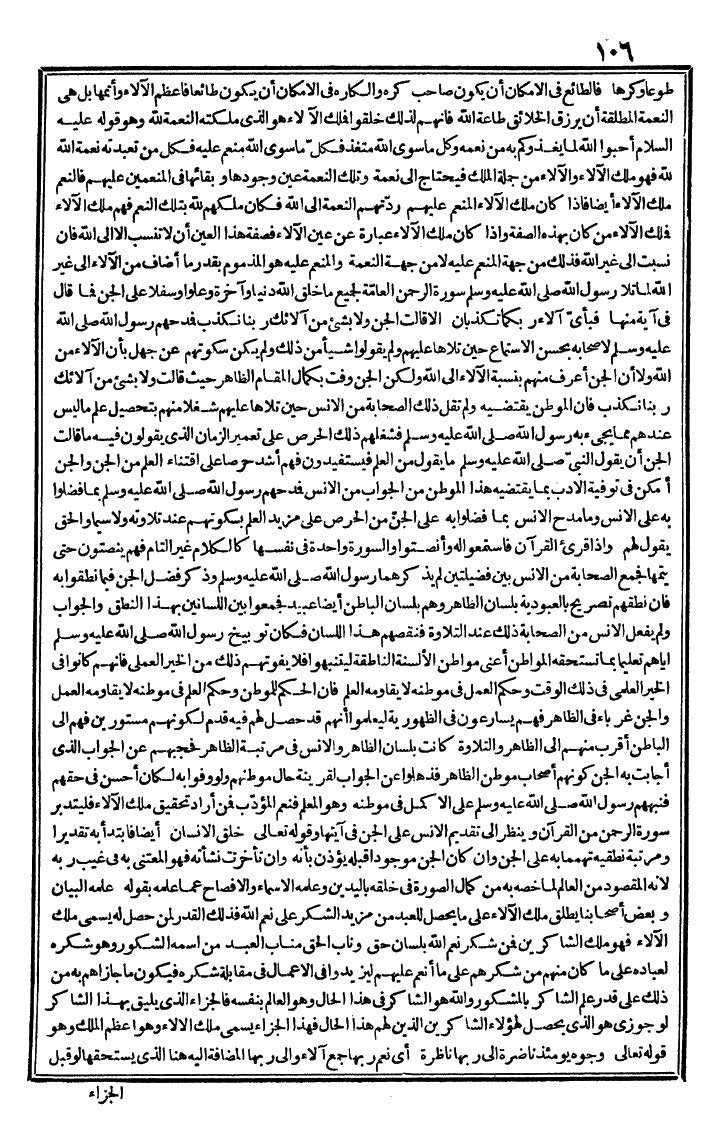 ١٠٦
طوعا وكرها فالطائع فى الامكان أن يكون صاحب كره والكاره فى الامكان أن يكون طائعا فاعظم الآلاء وأتمها بل هى
النعمة المطلقة أن يرزق الخلائق طاعة الله فانهم لذلك خلقوا فملك الآلاء هو الذى ملكته النعمة لله وهو قوله عليه
السلام أحبوا الله لما يغذوكم به من نعمه وكل ما سوى الله متغذ فكل ما سوى الله منعم عليه فكل من تعبدته نعمة الله
لله فهو ملك الآلاء والآلاء من جملة الملك فيحتاج الى نعمة وتلك النعمة عين وجودها وبقائها فى المنعمين عليهم فالنعم
ملك الآلاء أيضا فاذا كان ملك الآلاء المنعم عليهم ردّتهم النعمة الى الله فكان ملكهم لله بتلك النعم فهم ملك الآلاء
فملك الآلاء من كان بهذه الصفة واذا كان ملك الآلاء عبارة عن عين الآلاء فصفة هذا العين أن لا تنسب الا الى الله فان
نسبت الى غير الله فذلك من جهة المنعم عليه لا من جهة النعمة والمنعم عليه هو المذموم بقدر ما أضاف من الآلاء الى غير
الله لما تلا رسول الله صلى الله عليه وسلم سورة الرحمن العامّة لجميع ما خلق الله دنيا وآخرة وعلوا وسفلا على الجن فما قال
فى آية منها فبأىّ آلاء ربكما تكذبان الا قالت الجن ولا بشئ من آلائك ربنا نكذب فمدحهم رسول الله صلى الله
عليه وسلم لاصحابه بحسن الاستماع حين تلاها عليهم ولم يقولوا شيأ من ذلك ولم يكن سكوتهم عن جهل بأن الآلاء من
الله ولا أن الجن أعرف منهم بنسبة الآلاء الى الله ولكن الجن وفت بكمال المقام الظاهر حيث قالت ولا بشئ من آلائك
ربنا نكذب فان الموطن يقتضيه ولم تقل ذلك الصحابة من الانس حين تلاها عليهم شغلا منهم بتحصيل علم ما ليس
عندهم مما يجىء به رسول الله صلى الله عليه وسلم فشغلهم ذلك الحرص على تعمير الزمان الذى يقولون فيه ما قالت
الجن أن يقول النبىّ صلى الله عليه وسلم ما يقول من العلم فيستفيدون فهم أشد حرصا على اقتناء العلم من الجن والجن
أمكن فى توفية الادب بما يقتضيه هذا الموطن من الجواب من الانس فمدحهم رسول الله صلى الله عليه وسلم بما فضلوا
به على الانس وما مدح الانس بما فضلوا به على الجنّ من الحرص على مزيد العلم بسكوتهم عند تلاوته ولا سيما والحق
يقول لهم واذا قرئ القرآن فاستمعوا له وأنصتوا والسورة واحدة فى نفسها كالكلام غير التام فهم ينصتون حتى
يتمها فجمع الصحابة من الانس بين فضيلتين لم يذكرهما رسول الله صلى الله عليه وسلم وذكر فضل الجن فيما نطقوا به
فان نطقهم تصريح بالعبودية بلسان الظاهر وهم بلسان الباطن أيضا عبيد فجمعوا بين اللسانين بهذا النطق والجواب
ولم يفعل الانس من الصحابة ذلك عند التلاوة فنقصهم هذا اللسان فكان توبيخ رسول الله صلى الله عليه وسلم
اياهم تعليما بما تستحقه المواطن أعنى مواطن الألسنة الناطقة ليتنبهوا فلا يفوتهم ذلك من الخير العملى فانهم كانوا فى
الخير العلمى فى ذلك الوقت وحكم العمل فى موطنه لا يقاومه العلم فان الحكم للموطن وحكم العلم فى موطنه لا يقاومه العمل
والجن غرباء فى الظاهر فهم يسارعون فى الظهور به ليعلموا أنهم قد حصل لهم فيه قدم لكونهم مستورين فهم الى
الباطن أقرب منهم الى الظاهر والتلاوة كانت بلسان الظاهر والانس فى مرتبة الظاهر فحجبهم عن الجواب الذى
أجابت به الجن كونهم أصحاب موطن الظاهر فذهلوا عن الجواب لقرينة حال موطنهم ولو وفوا به لكان أحسن فى حقهم
فنبههم رسول الله صلى الله عليه وسلم على الاكمل فى موطنه وهو المعلم فنعم المؤدّب فمن أراد تحقيق ملك الآلاء فليتدبر
سورة الرحمن من القرآن وينظر الى تقديم الانس على الجن فى آيتها وقوله تعالى خلق الانسان أيضا فابتدأ به تقديرا
ومرتبة نطقية تهمما به على الجن وان كان الجن موجودا قبله يؤذن بأنه وان تأخرت نشأته فهو المعتنى به فى غيب ربه
لانه المقصود من العالم لما خصه به من كمال الصورة فى خلقه باليدين وعلمه الاسماء والافصاح عما علمه بقوله علمه البيان
وبعض أصحابنا يطلق ملك الآلاء على ما يحصل للعبد من مزيد الشكر على نعم الله فذلك القدر لمن حصل له يسمى ملك
الآلاء فهو ملك الشاكرين فمن شكر نعم الله بلسان حق وناب الحق مناب العبد من اسمه الشكور وهو شكره
لعباده على ما كان منهم من شكرهم على ما أنعم عليهم ليزيدوا فى الاعمال فى مقابلة شكره فيكون ما جازاهم به من
ذلك على قدر علم الشاكر بالمشكور والله هو الشاكر فى هذا الحال وهو العالم بنفسه فالجزاء الذى يليق بهذا الشاكر
لو جوزى هو الذى يحصل لهؤلاء الشاكرين الذين لهم هذا الحال فهذا الجزاء يسمى ملك الالاء وهو أعظم الملك وهو
قوله تعالى وجوه يومئذ ناضرة الى ربها ناظرة أى نعم ربها جمع آلاء والى ربها المضافة اليه هنا الذى يستحقها لو قبل
الجزاء